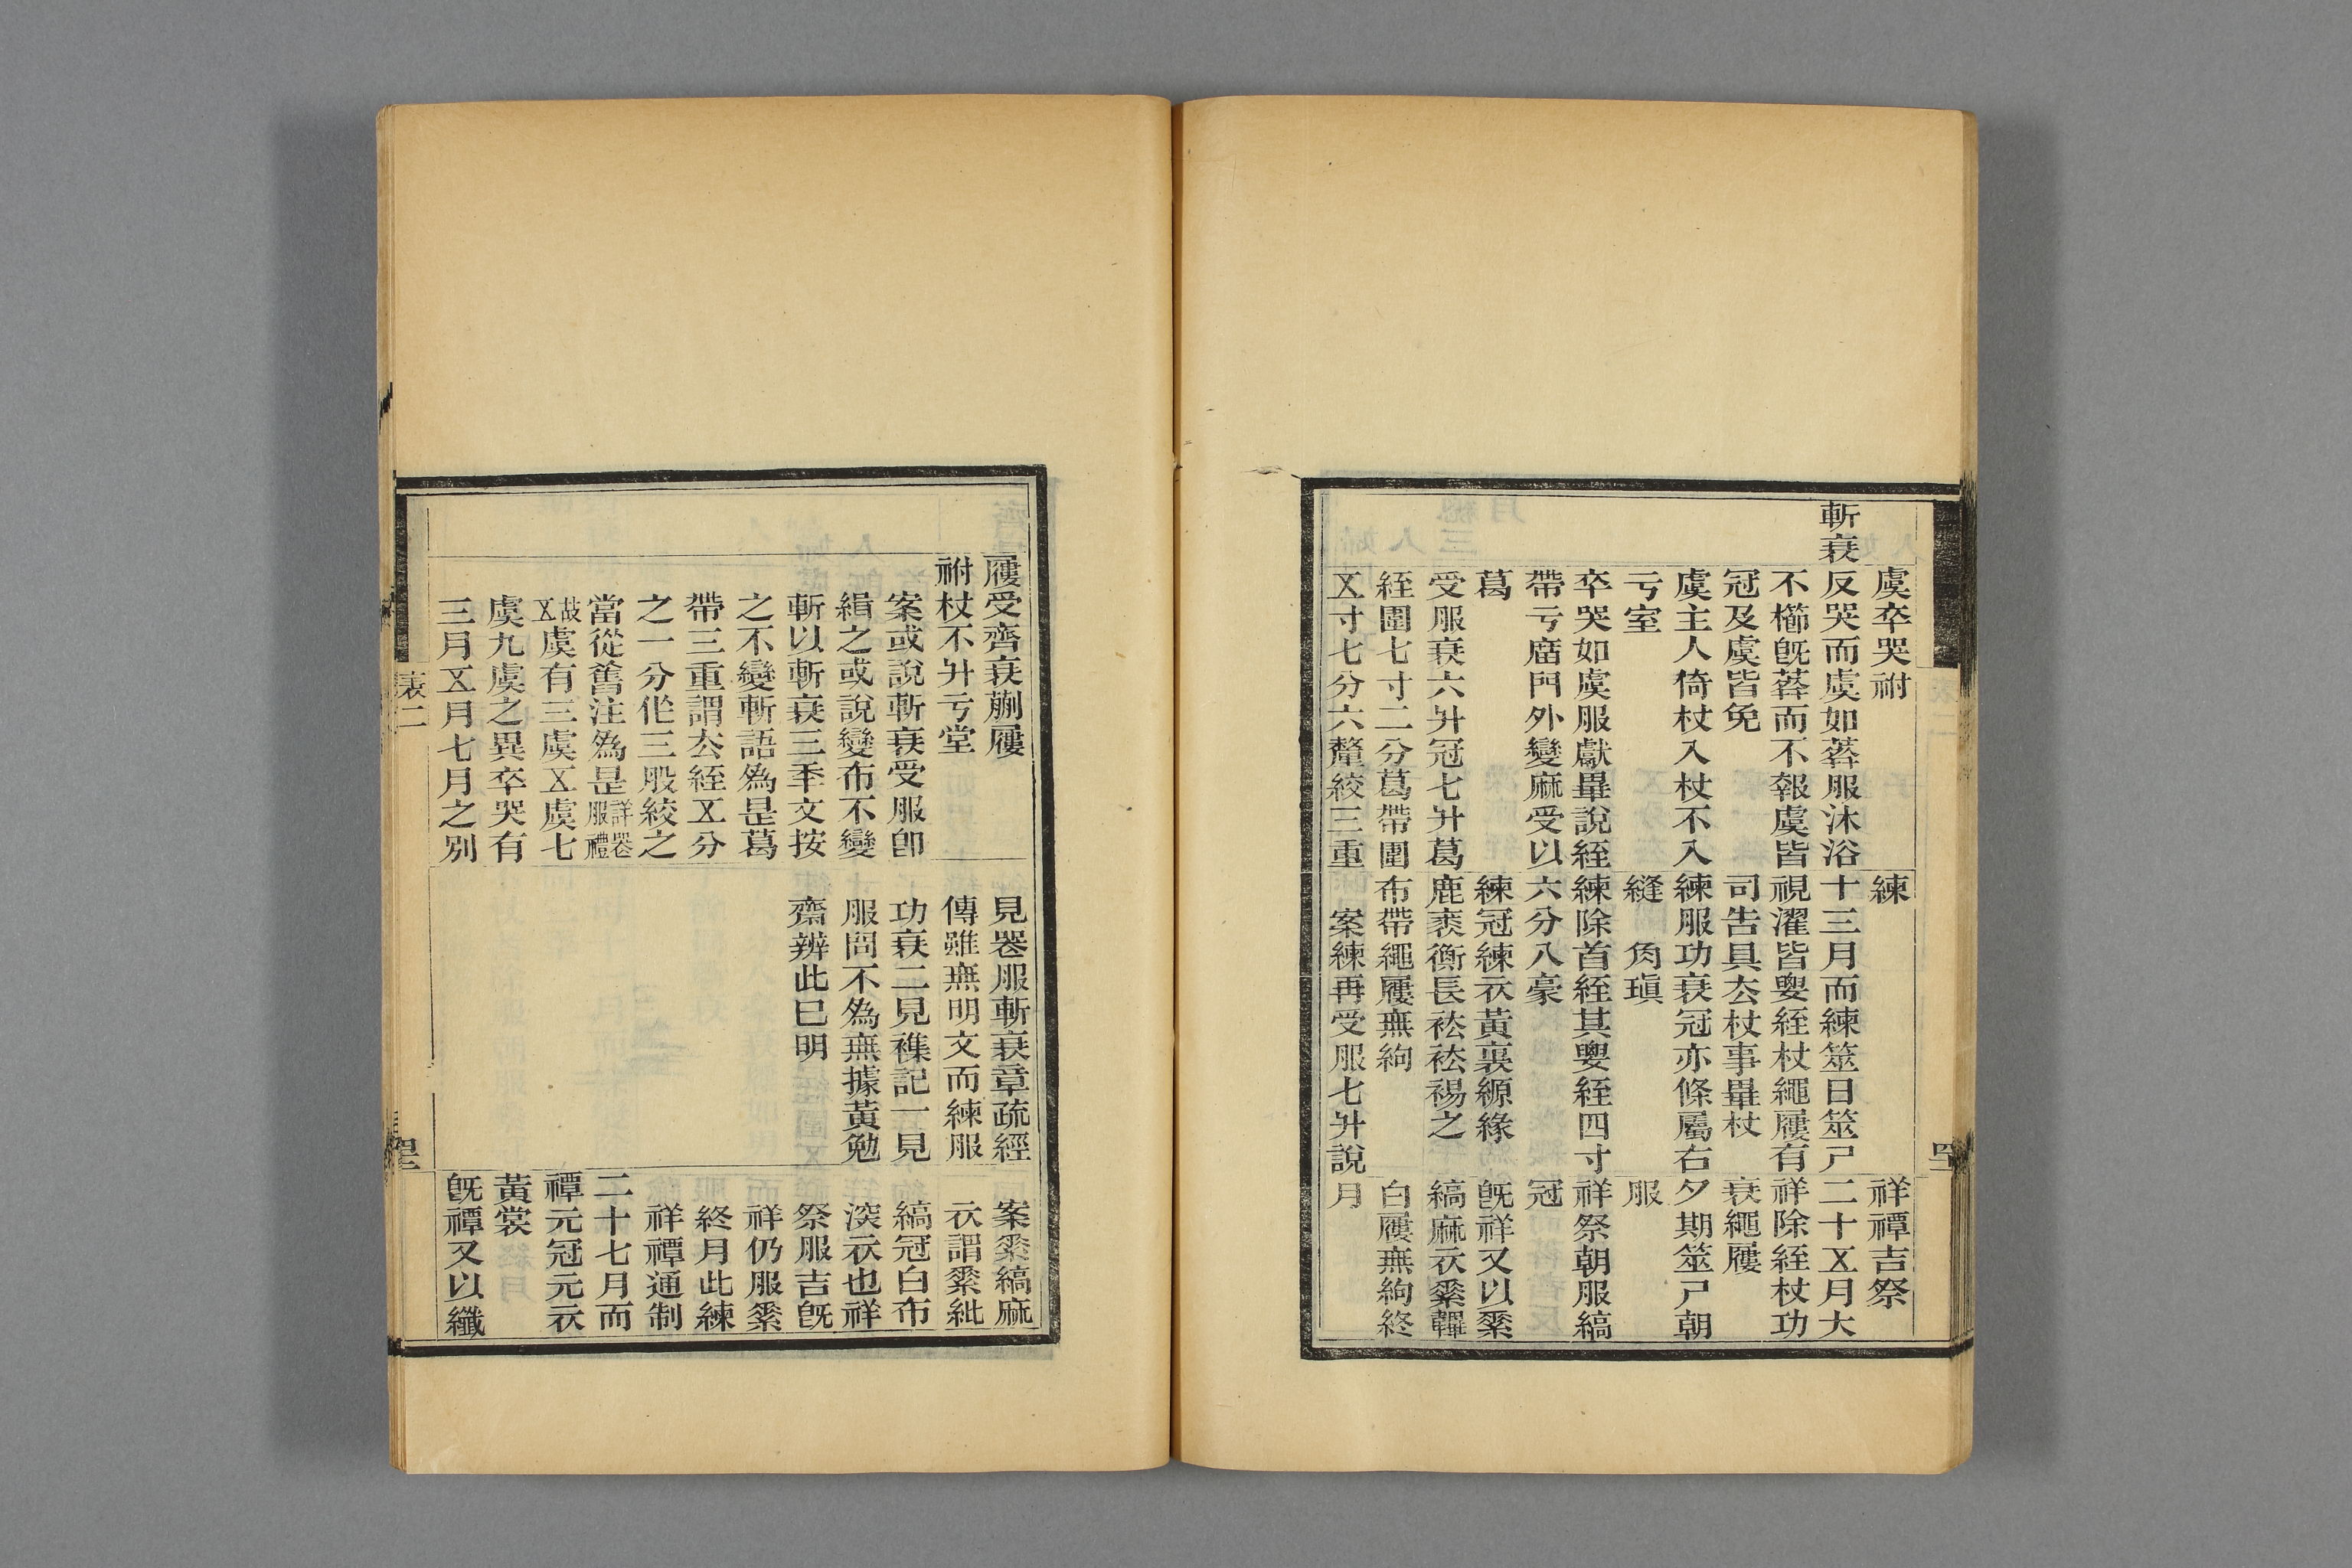 虞卒哭祔
練
祥禫吉祭
斬衰
反哭而虞如葬服沐浴
不櫛旣葬而不報虞皆
冠及虞皆免
虞主人倚杖入杖不入
亏室
卒哭如虞服獻畢說絰
帶亏庿門外變麻受以
葛
受服衰六升冠七升葛
絰圍七寸二分葛帶圍
㐅寸七分六釐絞三重
十三月而練筮日筮尸
視濯皆要絰杖繩屨有
司告具去杖事畢杖
練服功衰冠亦條屬右
縫　角瑱
練除首絰其要絰四寸
六分八豪
練冠練衣黃裏縓緣
鹿裘衡長袪袪裼之
布帶繩屨無絇
案練再受服七升說
二十㐅月大
祥除絰杖功
衰繩屨
夕期筮尸朝
服
祥祭朝服縞
冠
旣祥又以素
縞麻衣素韠
白屨無絇終
月
屨受齊衰蒯屨
祔杖不升亏堂
案或說斬衰受服卽
緝之或說變布不變
斬以斬衰三秊文按
之不變斬語為是葛
帶三重謂去絰㐅分
之一分作三股絞之
當從舊注為是詳喪服禮
故㐅虞有三虞㐅虞七
虞九虞之異卒哭有
三月㐅月七月之別
見喪服斬衰章疏經
傳雖無明文而練服
功衰二見襍記一見
服問不為無據黃勉
齋辨此已明
案素縞麻
衣謂素紕
縞冠白布
深衣也祥
祭服吉旣
祥仍服素
終月此練
祥禫通制
二十七月而
禫元冠元衣
黃裳
旣禫又以纖
表二